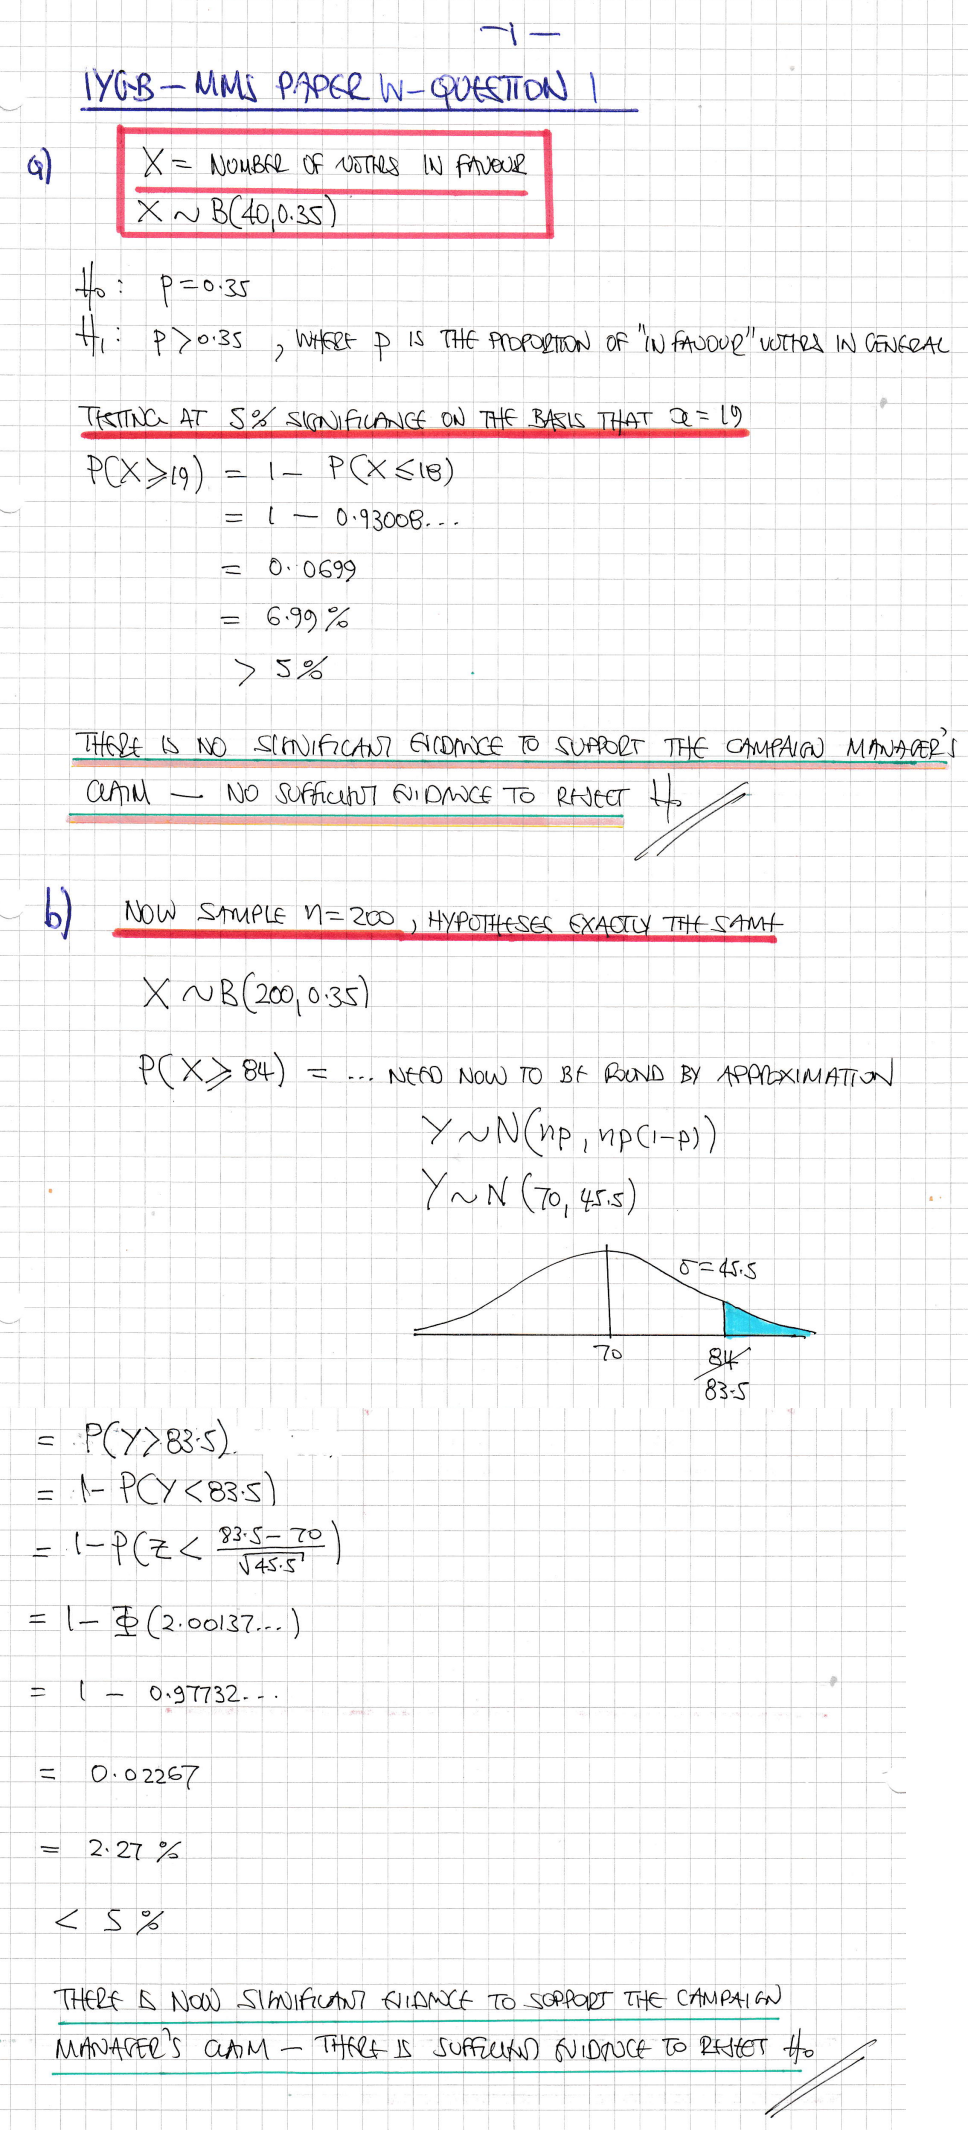 -1-
IYGB - MMS PAPER W - QUESTION 1
a) X = NUMBER OF VOTERS IN FAVOUR
X ~ B(40,0.35)
H₀: p=0.35
H₁: p>0.35 , WHERE p IS THE PROPORTION OF "IN FAVOUR" VOTERS IN GENERAL
TESTING AT 5% SIGNIFICANCE ON THE BASIS THAT x=19
P(X⩾19) = 1 - P(X≤18)
= 1 - 0.93008...
= 0.0699
= 6.99%
> 5%
THERE IS NO SIGNIFICANT EVIDENCE TO SUPPORT THE CAMPAIGN MANAGER'S
CLAIM - NO SUFFICIENT EVIDENCE TO REJECT H₀
b) NOW SAMPLE n=200, HYPOTHESES EXACTLY THE SAME
X ~ B(200,0.35)
P(X⩾84) = ... NEED NOW TO BE FOUND BY APPROXIMATION
Y ~ N(np, np(1-p))
Y ~ N(70, 45.5)
σ=45.5
70 84
83.5
= P(Y>83.5)
= 1- P(Y<83.5)
= 1-P(Z < (83.5-70)/√45.5)
= 1- Φ(2.00137...)
= 1 - 0.97732...
= 0.02267
= 2.27%
< 5%
THERE IS NOW SIGNIFICANT EVIDENCE TO SUPPORT THE CAMPAIGN
MANAGER'S CLAIM - THERE IS SUFFICIENT EVIDENCE TO REJECT H₀